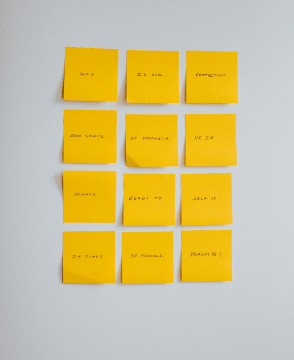 GOD
IS OUR
PROTECTION
AND SOURCE
OF STRENGTH.
HE IS
ALWAYS
READY TO
HELP US
IN TIMES
OF TROUBLE.